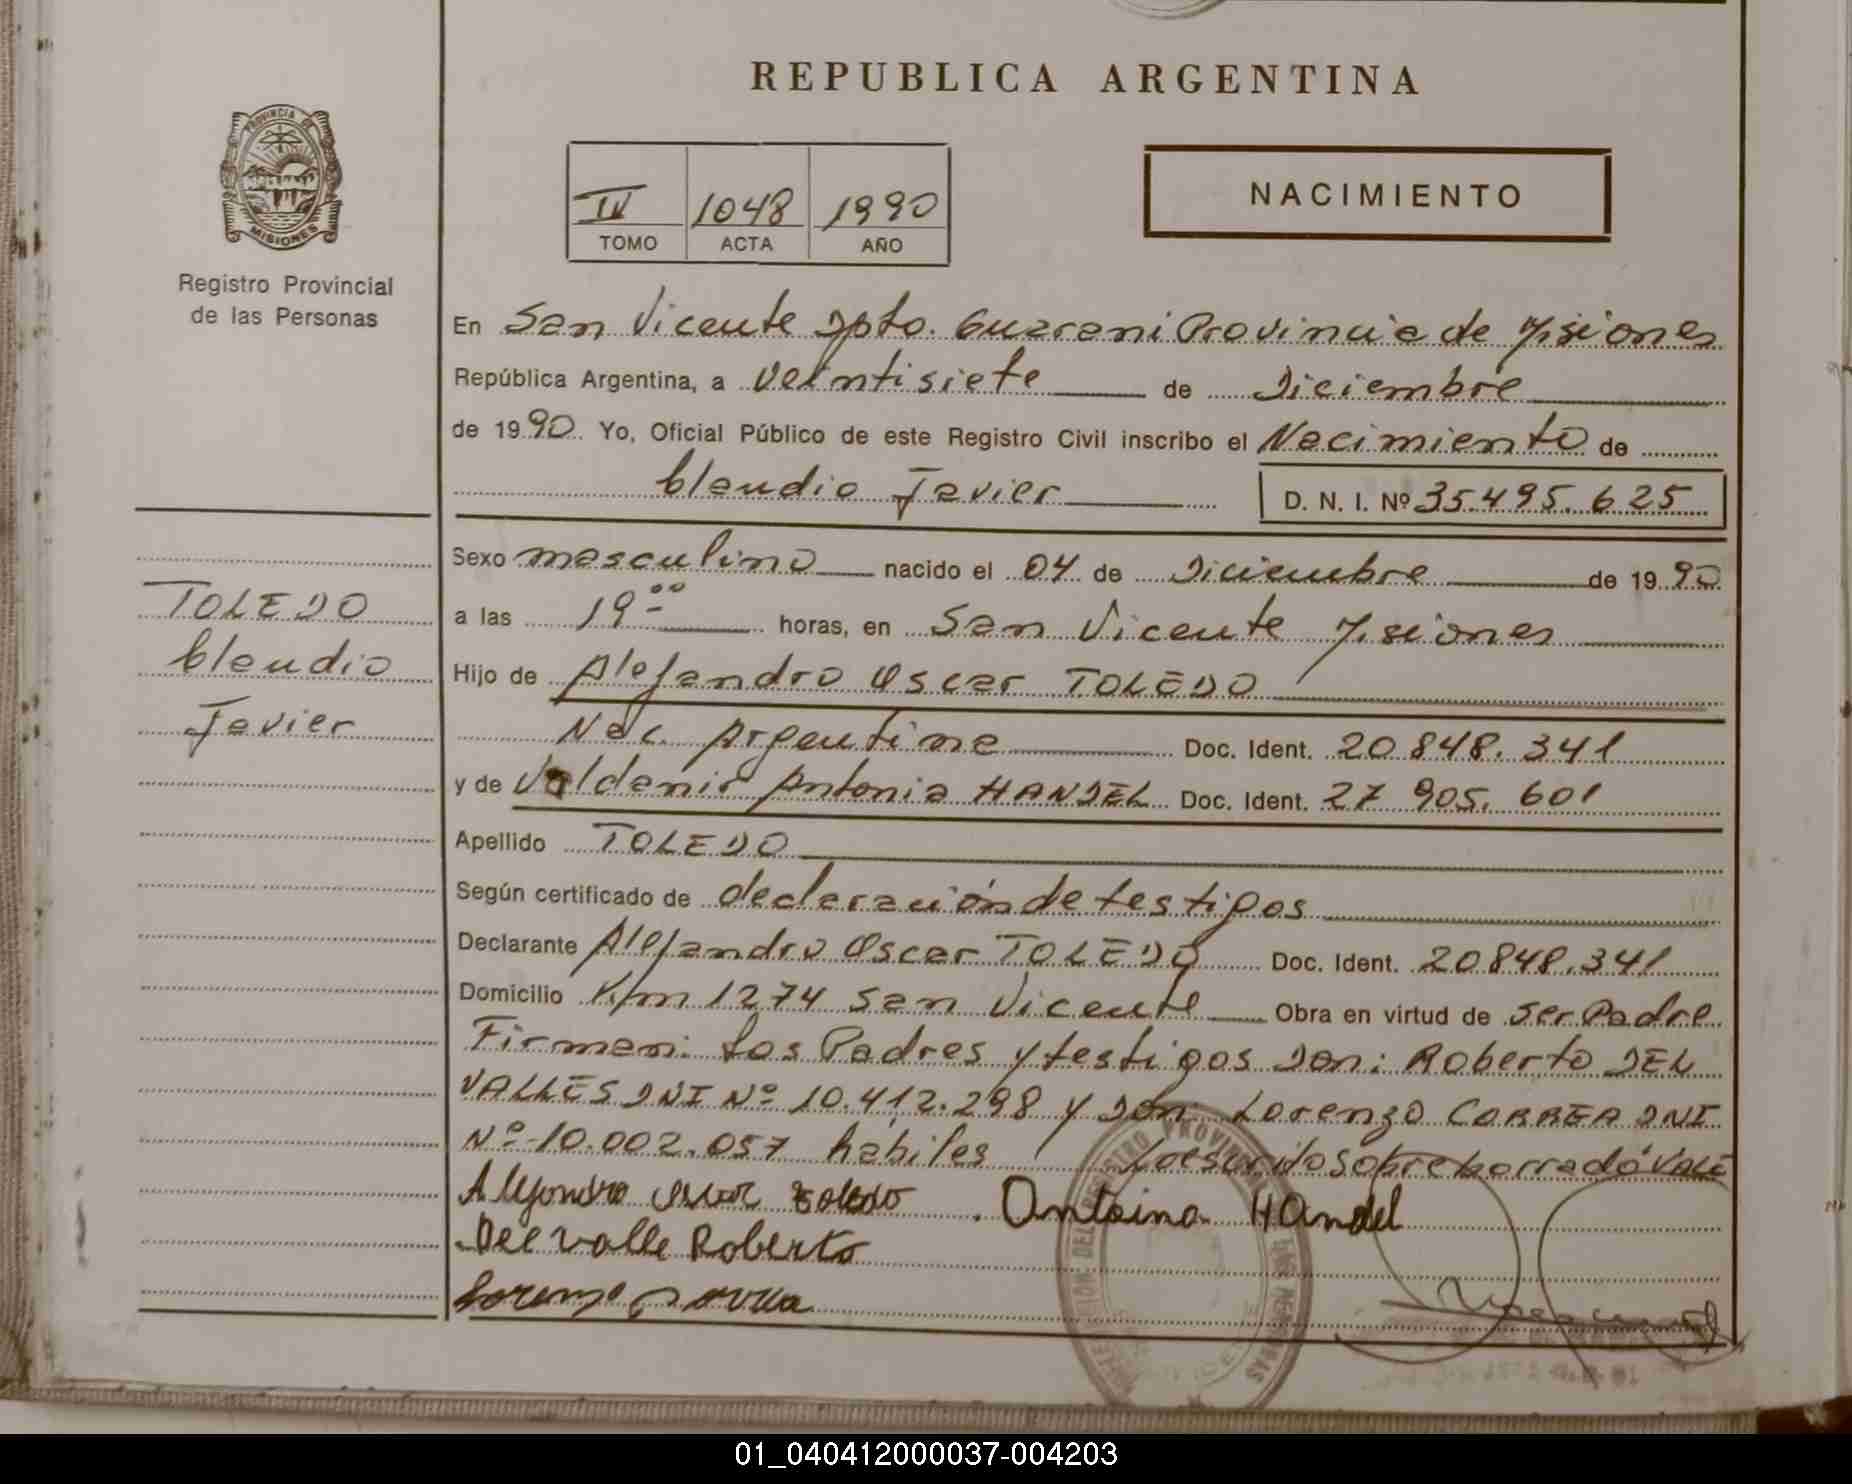 REPUBLICA ARGENTINA
PROVINCIA DE
MISIONES
Registro Provincial
de las Personas
IV 1048 1990
TOMO ACTA AÑO
NACIMIENTO
En San Vicente Dpto. Guarani Provincia de Misiones
República Argentina, a veintisiete de Diciembre
de 1990. Yo, Oficial Público de este Registro Civil inscribo el Nacimiento de
Claudio Javier
D. N. I. Nº 35.495.625
TOLEDO
Claudio
Javier
Sexo masculino nacido el 04 de Diciembre de 1990
a las 19 00 horas, en San Vicente Misiones
Hijo de Alejandro Oscar TOLEDO
Nac. Argentina Doc. Ident. 20.848.341
y de Valdenir Antonia HANDEL Doc. Ident. 27 905.601
Apellido TOLEDO
Según certificado de declaración de testigos
Declarante Alejandro Oscar TOLEDO Doc. Ident. 20848.341
Domicilio Km 1274 San Vicente Obra en virtud de ser Padre
Firman: Los Padres y testigos Don: Roberto DEL
VALLES DNI Nº 10.412.298 y Don: Lorenzo CORREA DNI
Nº 10.002.057 hábiles Lo escrito sobre borrado Vale
Alejandro Oscar Toledo Antoina Handel
Del valle Roberto
Lorenzo Correa
01_040412000037-004203